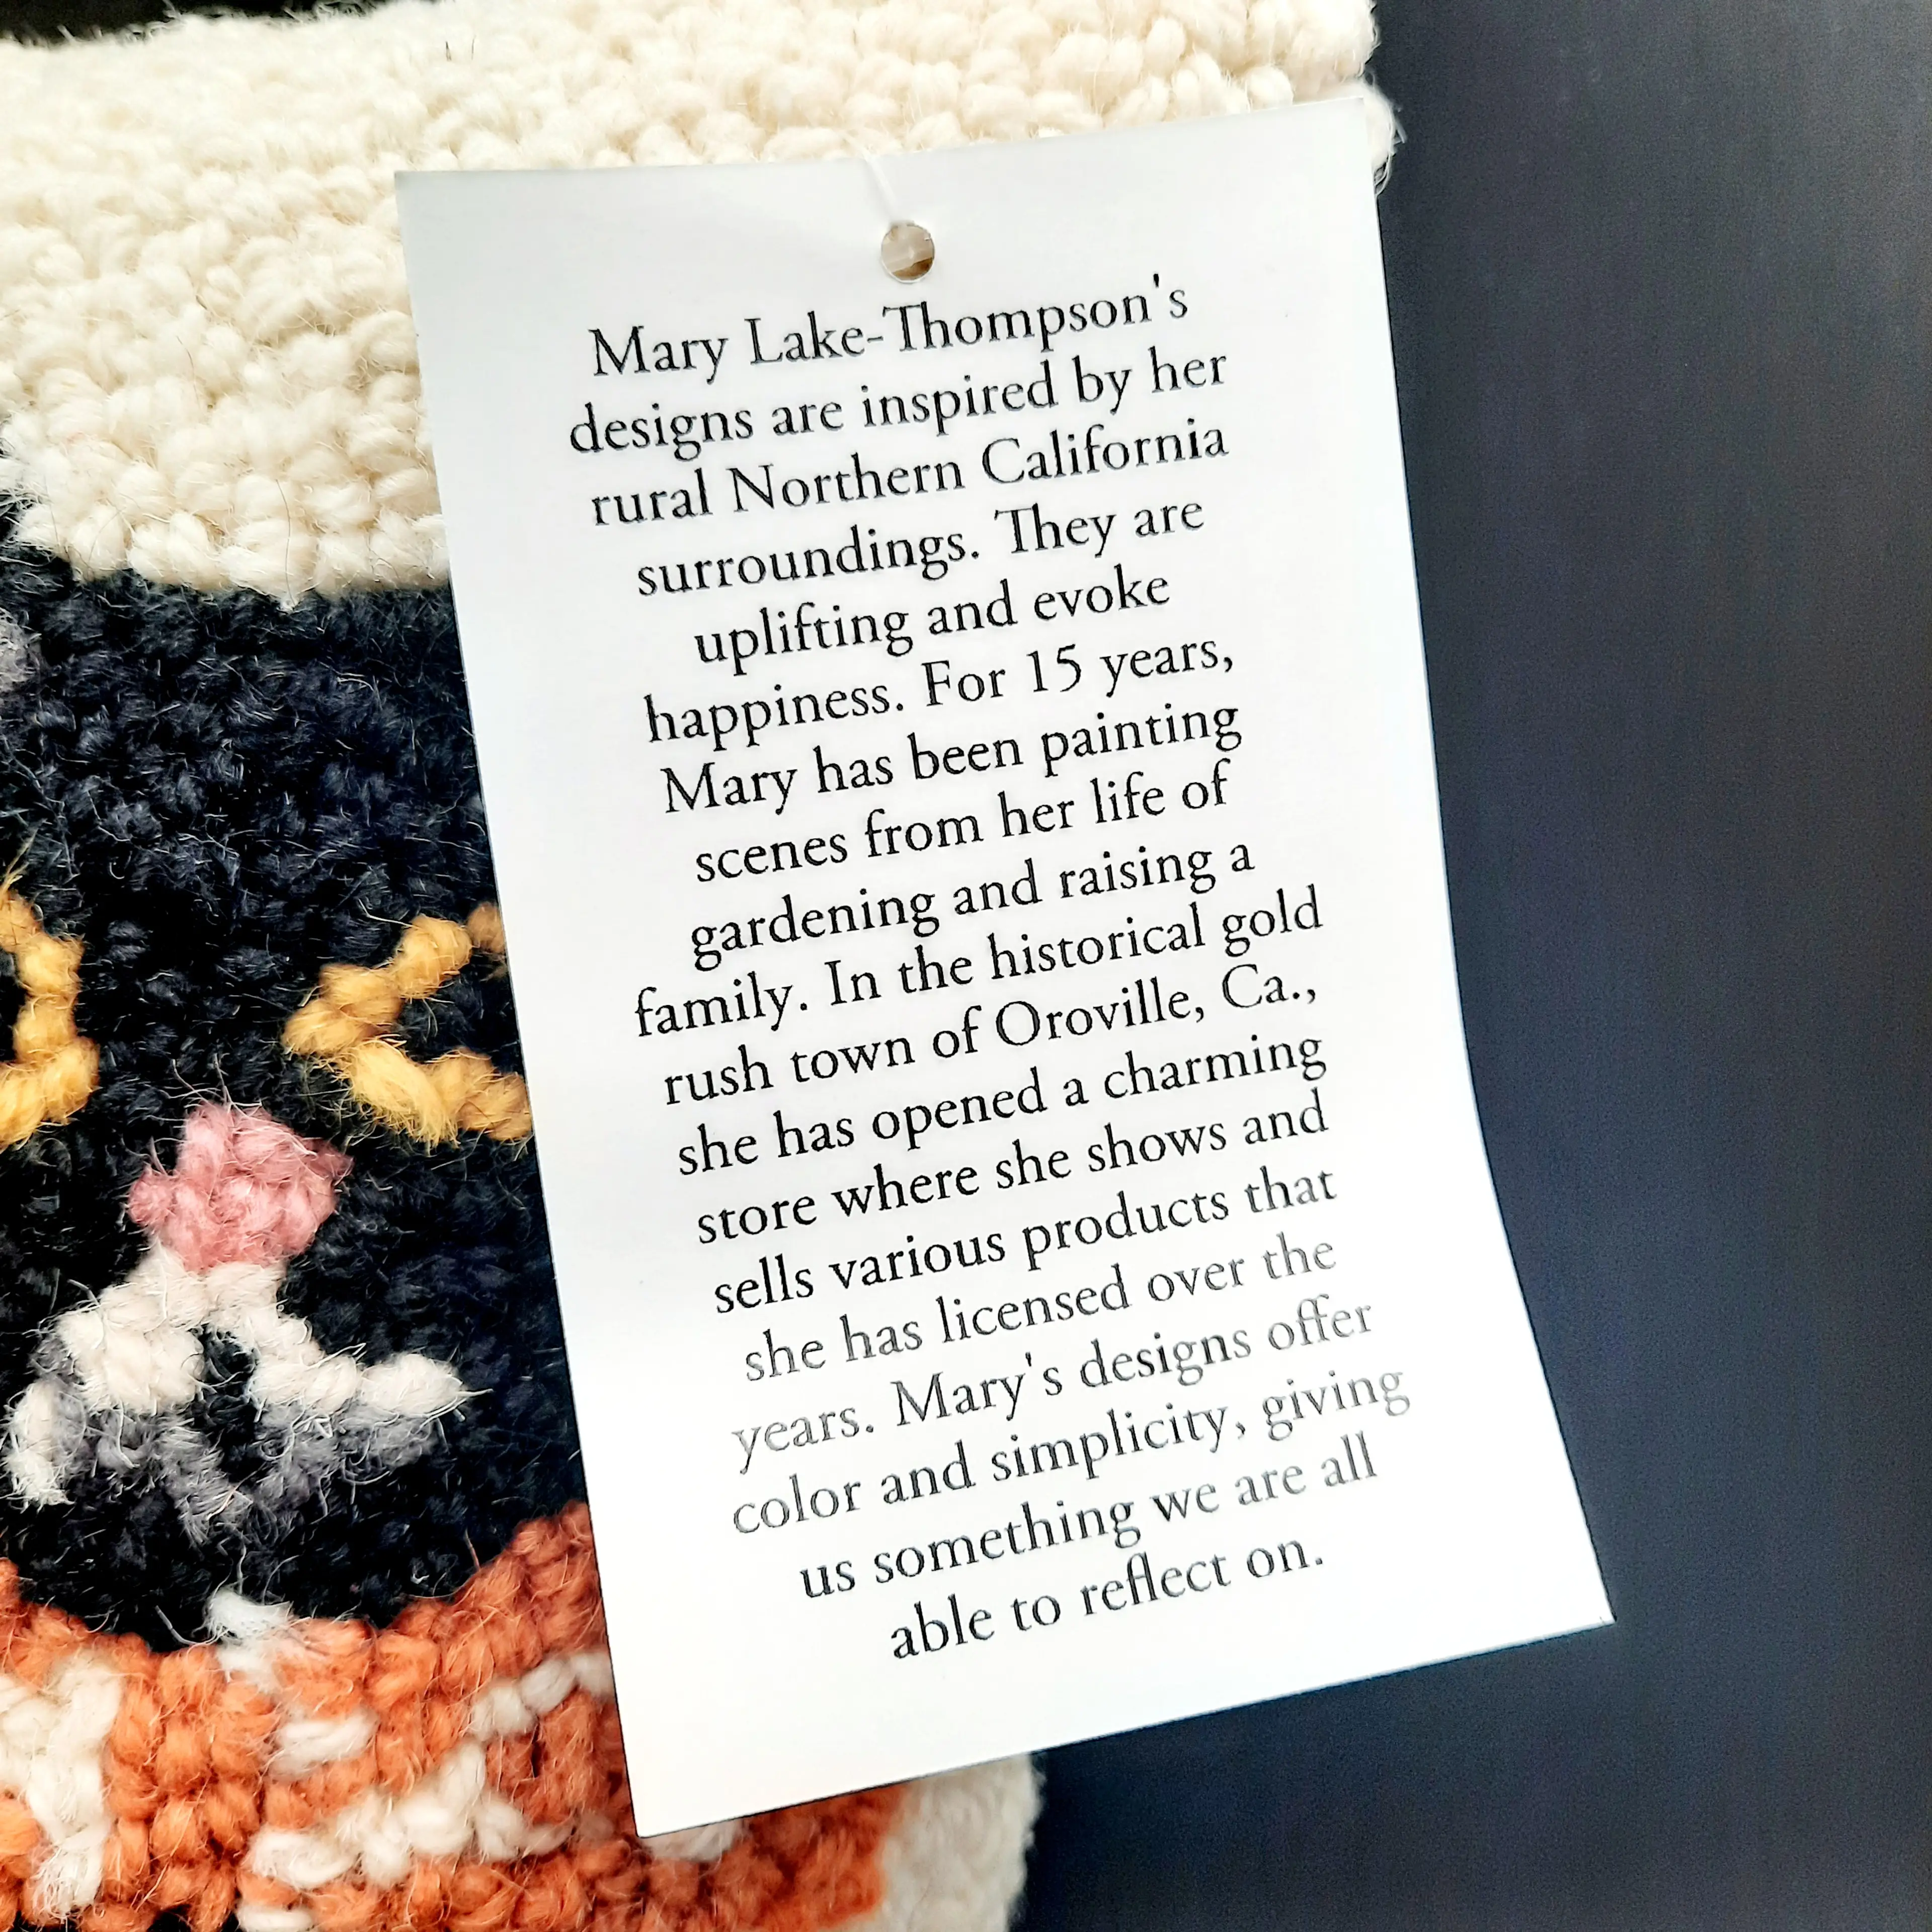 Mary Lake-Thompson's
designs are inspired by her
rural Northern California
surroundings. They are
uplifting and evoke
happiness. For 15 years,
Mary has been painting
scenes from her life of
gardening and raising a
family. In the historical gold
rush town of Oroville, Ca.,
she has opened a charming
store where she shows and
sells various products that
she has licensed over the
years. Mary's designs offer
color and simplicity, giving
us something we are all
able to reflect on.